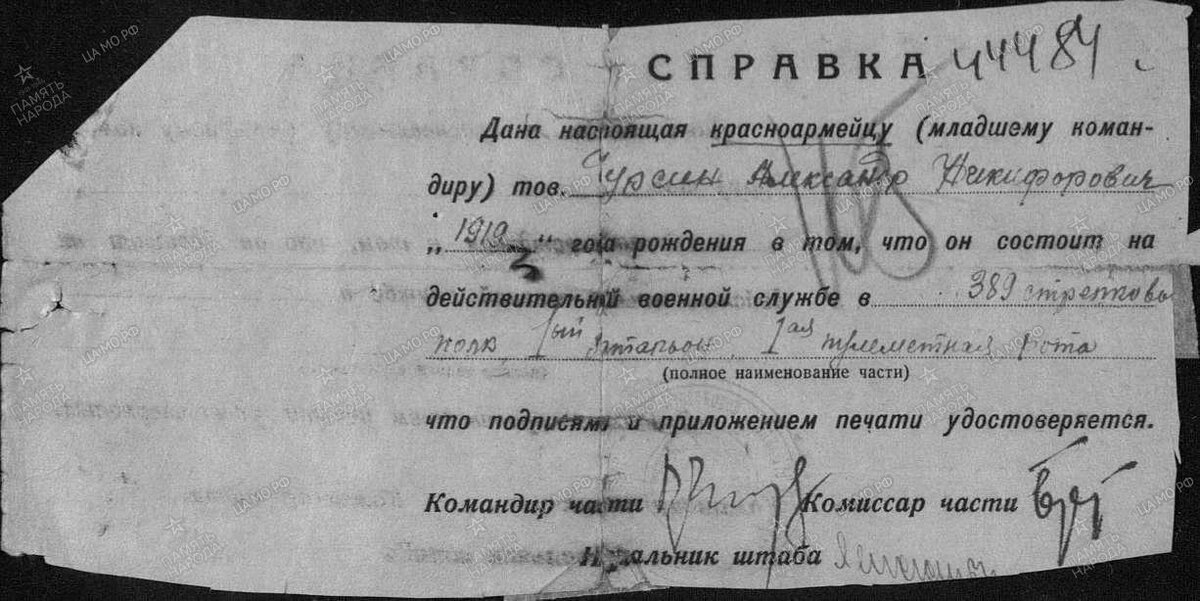 СПРАВКА 44484
Дана настоящая красноармейцу (младшему коман-
диру) тов. Гурсин Александр Никифорович
„ 1919 “ года рождения в том, что он состоит на
действительной военной службе в 389 стрелковы
полк 1ый баталион, 1ая пулеметная рота
(полное наименование части)
что подписями и приложением печати удостоверяется.
Командир части Комиссар части
Начальник штаба
ЦАМО.РФ
ПАМЯТЬ
НАРОДА